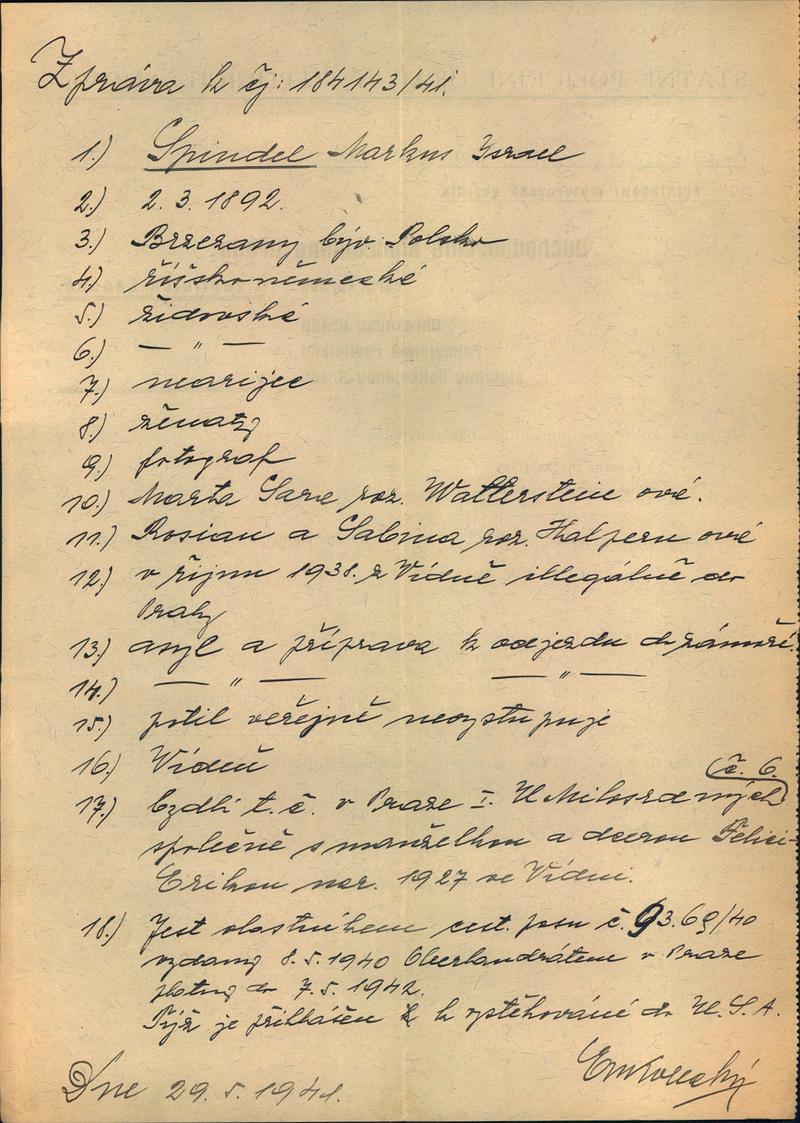 Zpráva k čj: 184143/41.
1.) Spindel Markus Israel
2.) 2. 3. 1892.
3.) Brzezany býv. Polsko
4.) říšskoněmecké
5.) židovské
6.) — " —
7.) nearijec
8.) ženatý
9.) fotograf
10.) Marta Sare roz. Wallerstein ové.
11.) Rosian a Sabina roz. Halpern ové
12.) v říjnu 1938. z Vídně illegálně do
Prahy
13.) asyl a příprava k odjezdu do zámoří.
14.) — " — — " —
15.) potil veřejně nevystupuje
16.) Vídeň
č. 6.
17.) bydlí t. č. v Praze I. U Milosrdných
společně s manželkou a dcerou Felici-
Erikou nar. 1927 ve Vídni.
18.) Jest vlastníkem cest. pasu č. 93.69/40
vydaný 8. 5. 1940 Oberlandrátem v Praze
platný do 7. 5. 1942.
Týž je přihlášen k vystěhování do U. S. A.
Dne 29. 5. 1941.